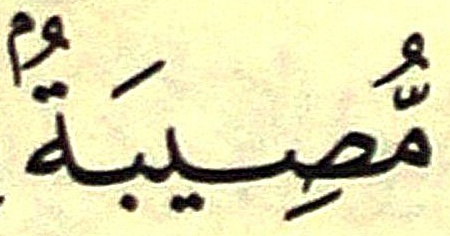 مُّصِيبَةٌۢ